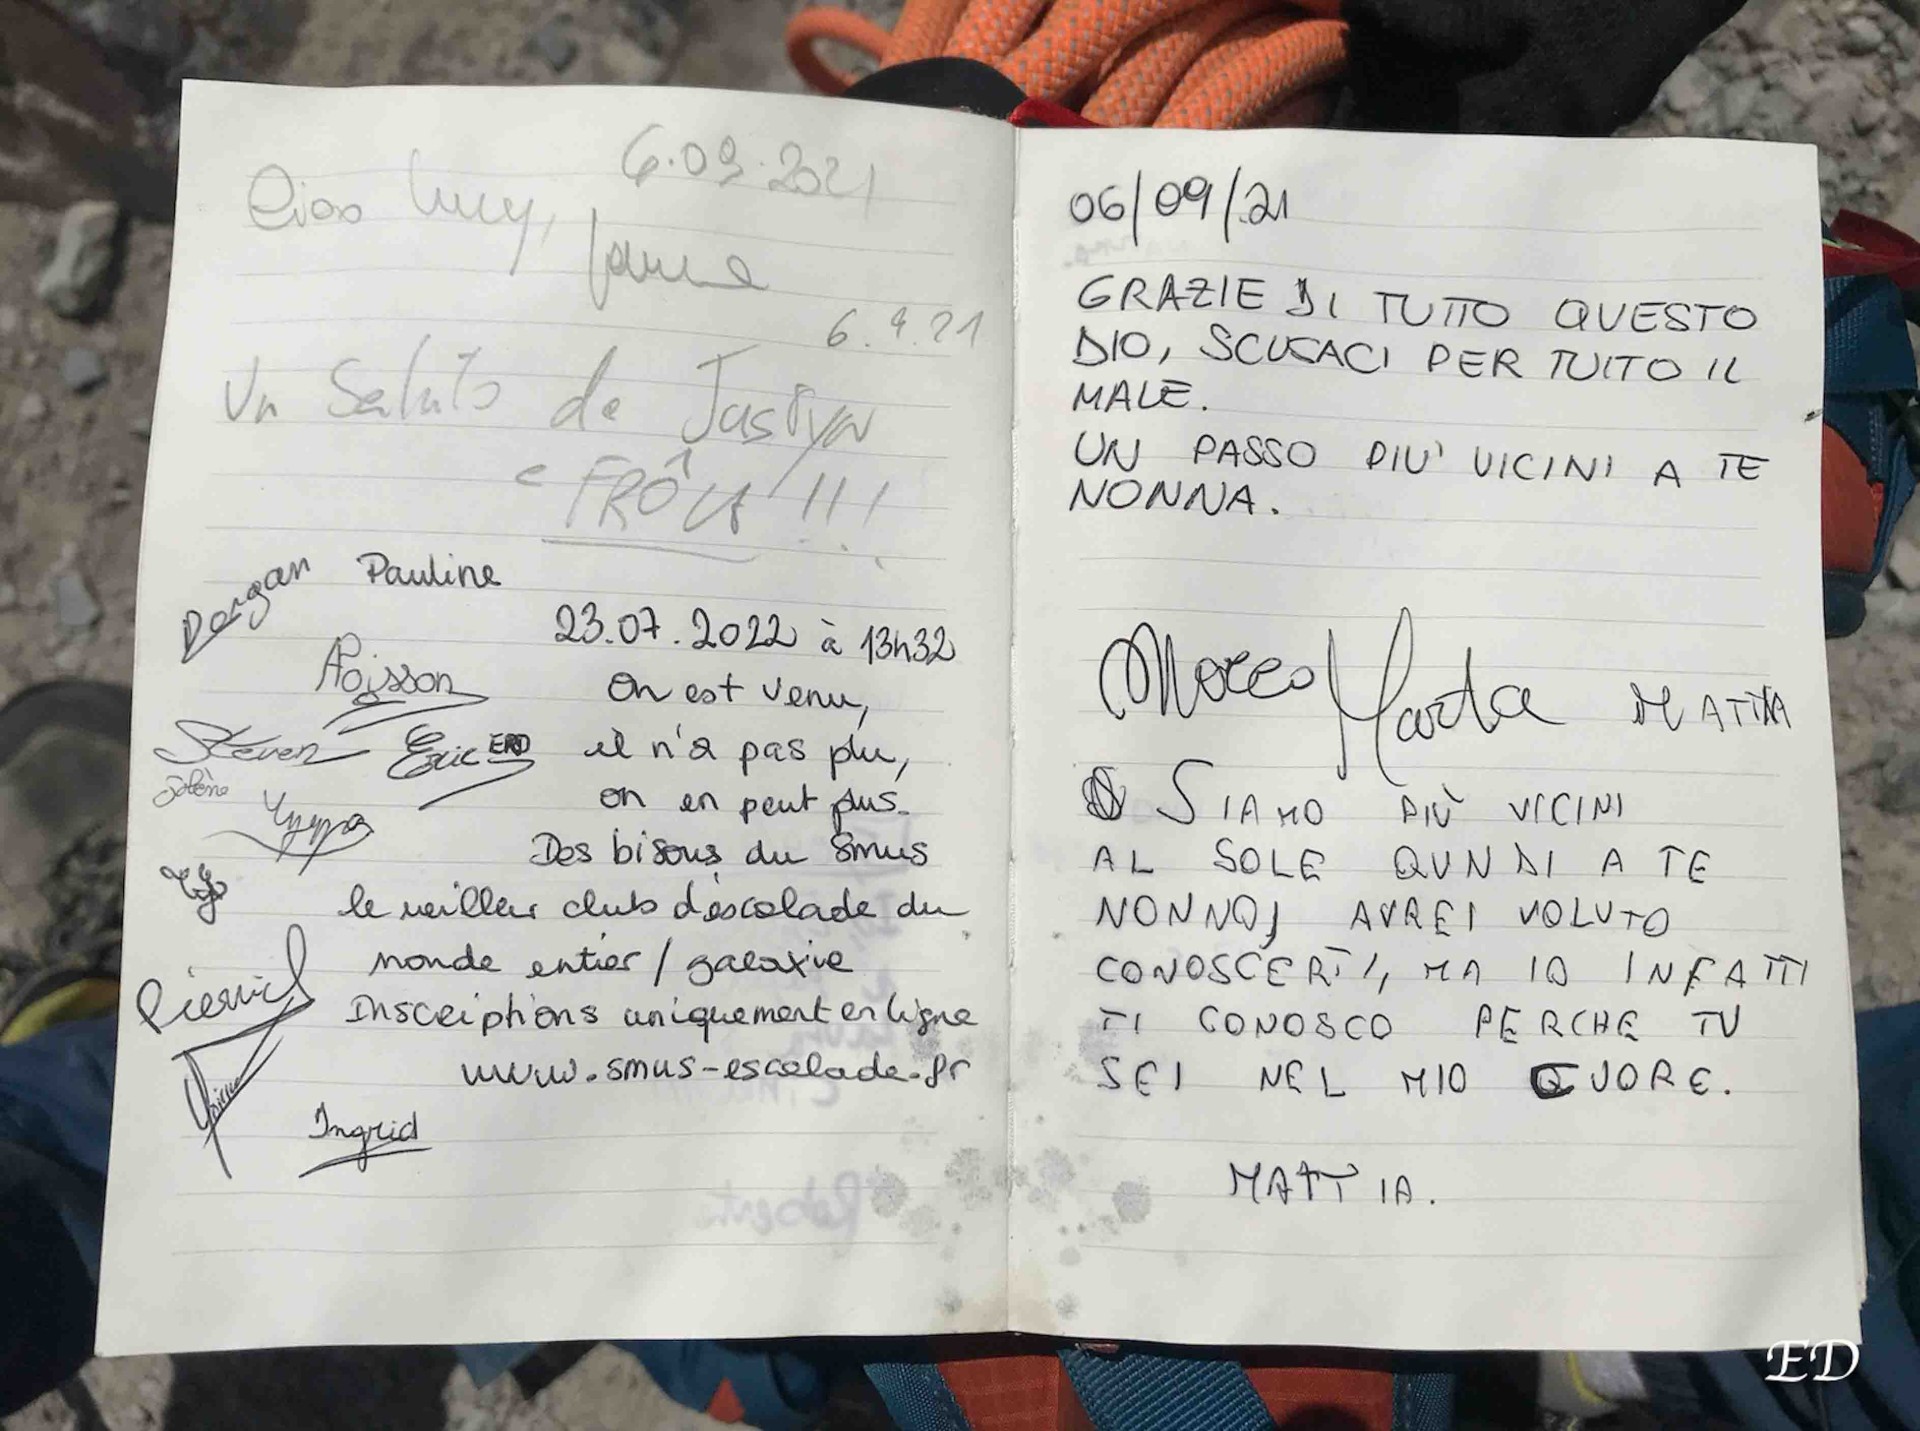 6.09.2021
Ciao Lucy,
6.9.21
Un Saluto da Justyn
e FRÔCH !!!
Dorgan Pauline
Poisson
Steven Eric ERD
Jolène
Pierrick
Ingrid
23.07.2022 à 13h32
On est venu,
il n'a pas plu,
on en peut plus.
Des bisous du Smus
le meilleur club d'escalade du
monde entier / galaxie
Inscriptions uniquement en ligne
www.smus-escalade.fr
06/09/21
GRAZIE DI TUTTO QUESTO
DIO, SCUSACI PER TUTTO IL
MALE.
UN PASSO PIU' VICINI A TE
NONNA.
Marco Marta MATTIA
SIAMO PIÙ VICINI
AL SOLE QUNDI A TE
NONNO, AVREI VOLUTO
CONOSCERTI, MA IO INFATTI
TI CONOSCO PERCHE TU
SEI NEL MIO QUORE.
MATTIA.
ED